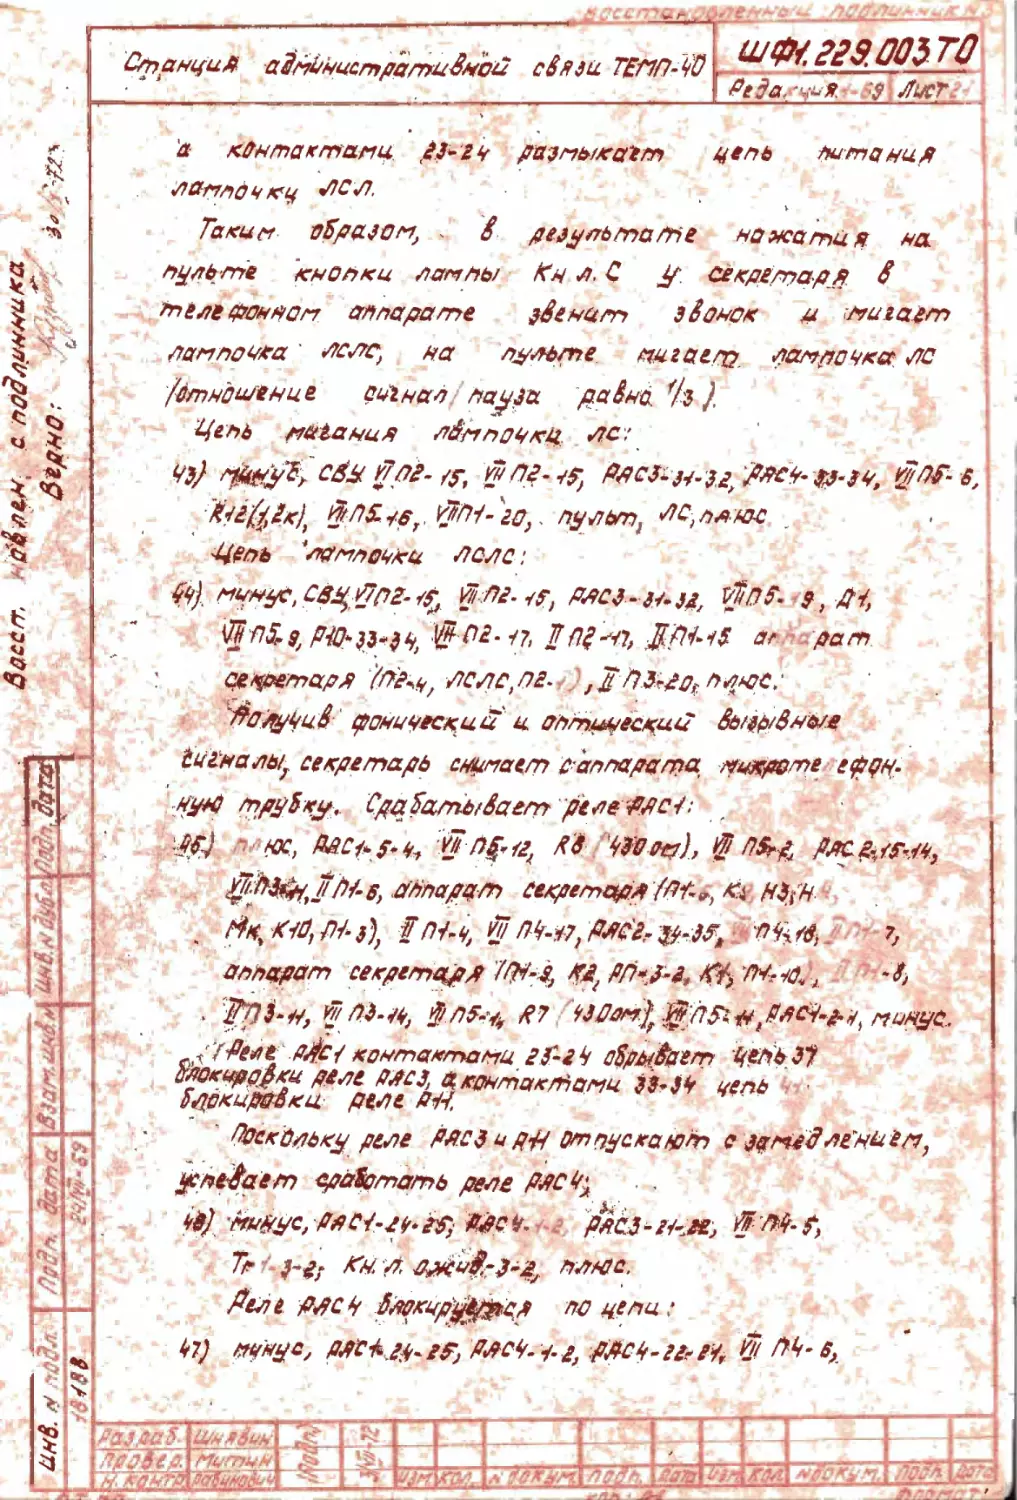 Восстановленный подлинник №3
Станция административной связи ТЕМП-40
ШФ1.229.003 ТО
Редакция 1-69 Лист 21
а контактами 23-24 размыкает цепь питания
лампочки ЛСЛ.
Таким образом, в результате нажатия на
пульте кнопки лампы Кн.л.С у секретаря в
телефонном аппарате звенит звонок и мигает
лампочка ЛСЛС, на пульте мигает лампочка ЛС
/отношение сигнал/пауза равно 1/3/.
Цепь мигания лампочки ЛС:
43) минус, СВУ, VIП2-15, VIIП2-15, РЯС3-31-32, РЯС4-33-34, VIIП5-6,
R12(1,2к), VIIП5-16, VIIП1-20, пульт, ЛС, плюс
Цепь лампочки ЛСЛС:
44) минус, СВУ, VIП2-15, VIIП2-15, РЯС3-31-32, VIIП5-9, Д1,
VIIП5-9, Р10-33-34, VIIП2-17, IIП2-17, IIП1-15 аппарат
секретаря (П2-4, ЛСЛС, П2- ), IIП3-20, плюс.
Получив фонический и оптический вызывные
сигналы, секретарь снимает с аппарата микротелефон-
ную трубку. Срабатывает реле РЯС1:
45) плюс, РЯС1-5-4, VIIП5-12, R8 (430 ом), VIIП5-2, РЯС2-15-14,
IIП1-6, аппарат секретаря (П1-
Мк, К10, П1-3), IIП1-4, VIIП4-17, РЯС2-34-35, П4-18, 7,
аппарат секретаря (П1-9, К2, РП-3-2, К1, П1-10), -8,
IIП3-11, VIIП3-14, VIIП5-1, R7 (430ом), VIIП5-11, РЯС1-2-1, минус.
Реле РЯС1 контактами 23-24 обрывает цепь 37
блокировки реле РЯС3, а контактами 33-34 цепь 41
блокировки реле Р11.
Поскольку реле РЯС3 и Р11 отпускают с замедлением,
успевает сработать реле РЯС4:
46) минус, РЯС1-24-25, РЯС4-1-2, РЯС3-21-22, VIIП4-5,
3-2, Кн.л. оживв.-3-2, плюс.
Реле РЯС4 блокируется по цепи:
47) минус, РЯС1-24-25, РЯС4-1-2, РЯС4-22-21, VIIП4-6,
Восст. с подлинника
Верно: 30/ -72г
Инв. № подл. Подп. дата Взам.инв.№ Инв.№ дубл. Подп. дата
18188 24/VII-69
Разраб. Шнявин
Провер. Митин
Н.контр. Рабинович
Изм. Кол. № докум. Подп. Дата Изм. Кол. № докум. Подп. Дата
Формат